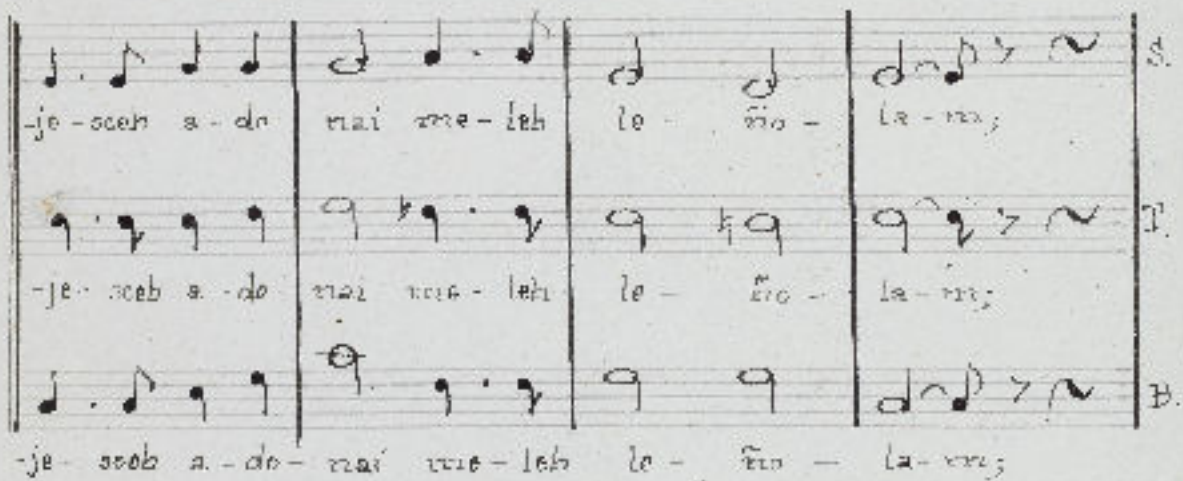 -je-sceb a-do nai me-leh le- ño- la-m;
S.
-je-sceb a-do nai me-leh le- ño- la-m;
T.
-je-sceb a-do-nai me-leh le- ño- la-m;
B.